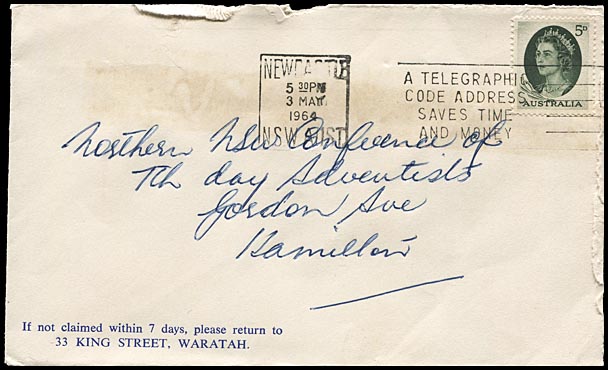 NEWCASTLE
5 30PM
3 MAY
1964
NSW AUST
A TELEGRAPHIC
CODE ADDRESS
SAVES TIME
AND MONEY
5D
AUSTRALIA
Northern NSW Conference of
7th day Adventists
Gordon Ave
Hamilton
If not claimed within 7 days, please return to
33 KING STREET, WARATAH.